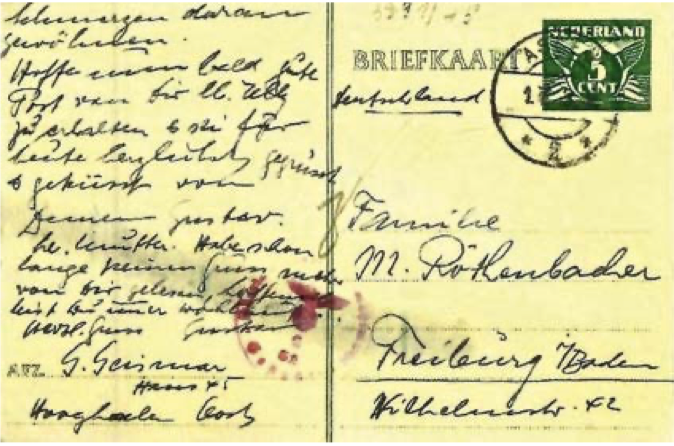 Schmerzen daran
gewöhnen.
Hoffe nun bald gute
Post von Dir lb.
zu erhalten & sei für
heute herzlichst gegrüsst
& geküsst von
Deinem Gustav.
lb. Mutter. Habe schon
lange keinen Gruss mehr
von Dir gelesen hoffentlich
bist Du immer
Herzl. Gruss Gustav
AFZ. G. Geismar
Haus 45
Oost
BRIEFKAART
Deutschland
NEDERLAND
5
CENT
2
Familie
M. Rothenbacher
Freiburg i/Baden
Wilhelmstr. 42